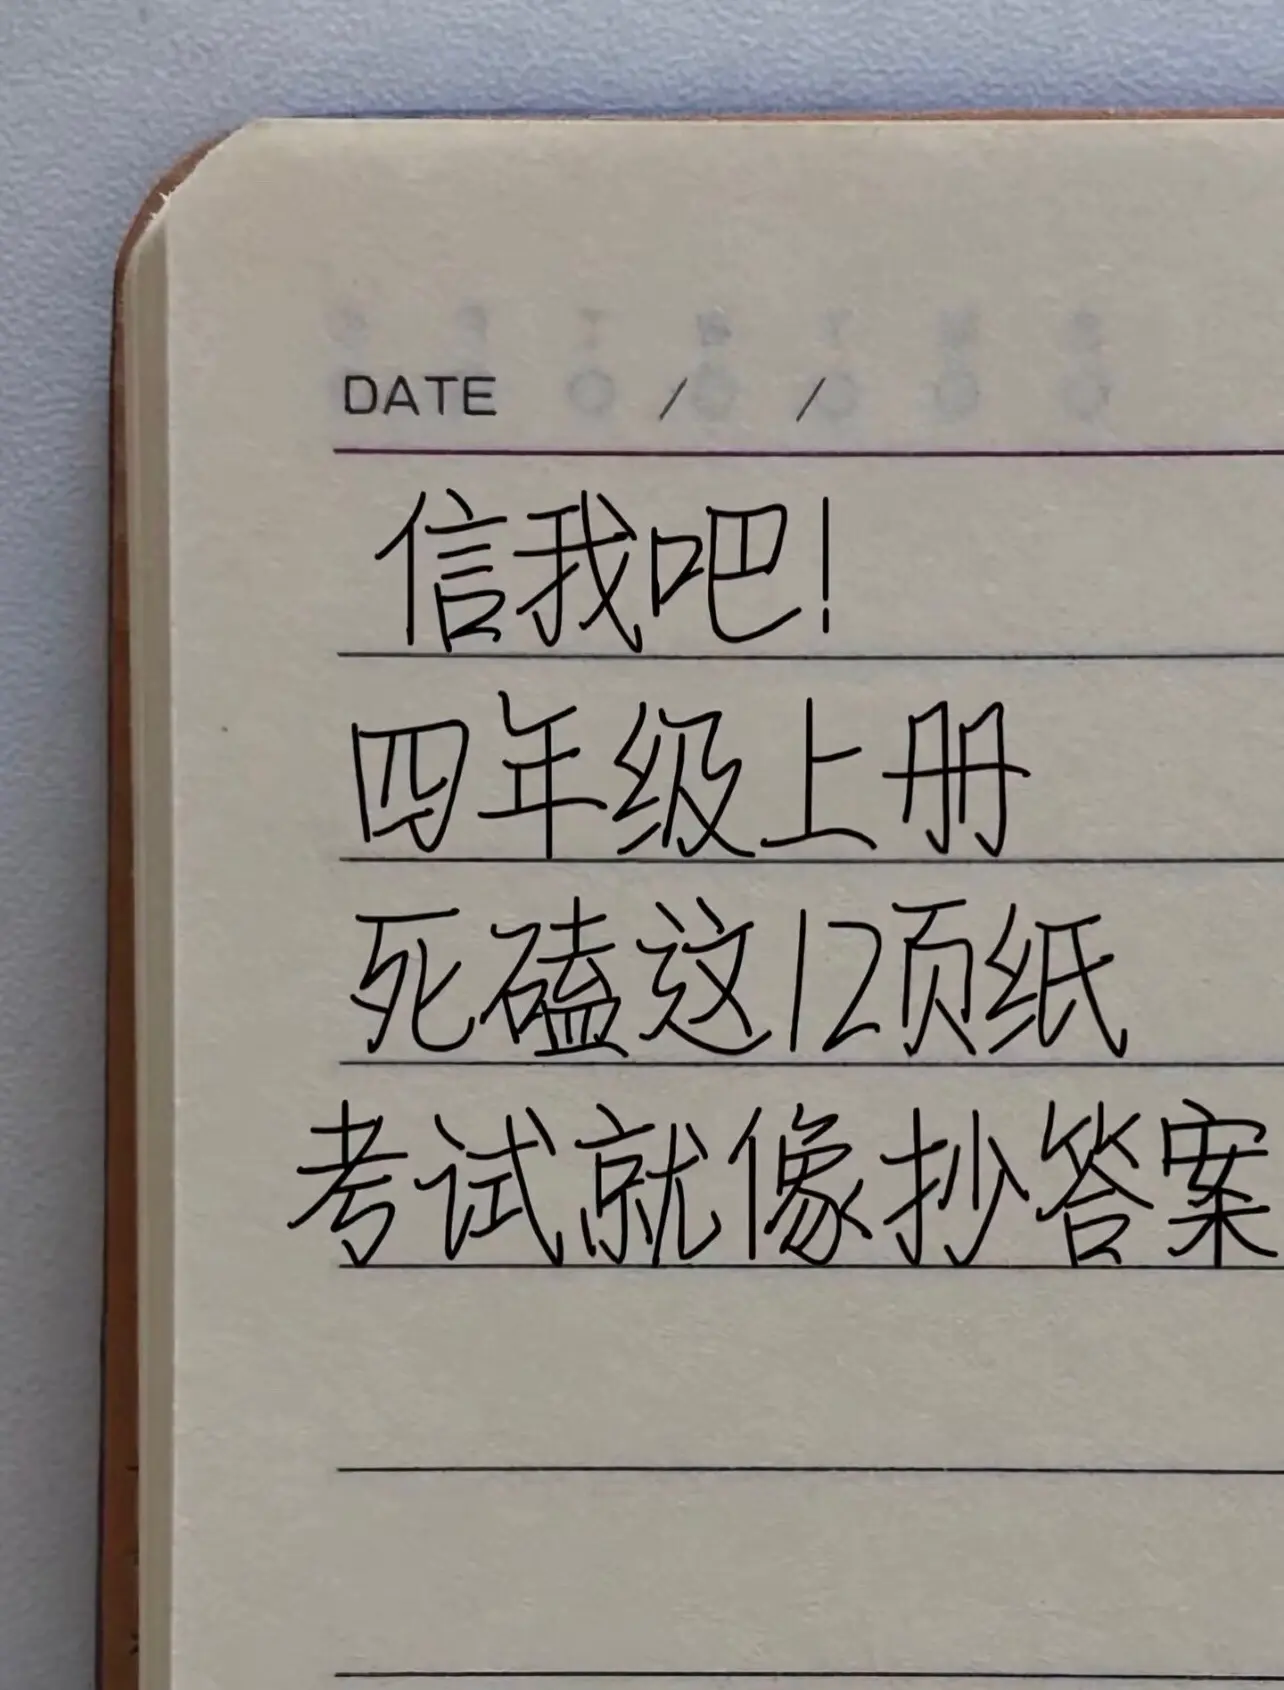 DATE / /
信我吧!
四年级上册
死磕这12页纸
考试就像抄答案